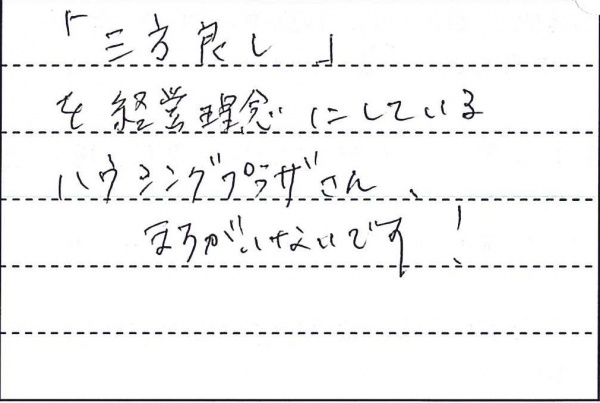 「三方良し」
を経営理念にしている
ハウジングプラザさん、
まちがいないです!